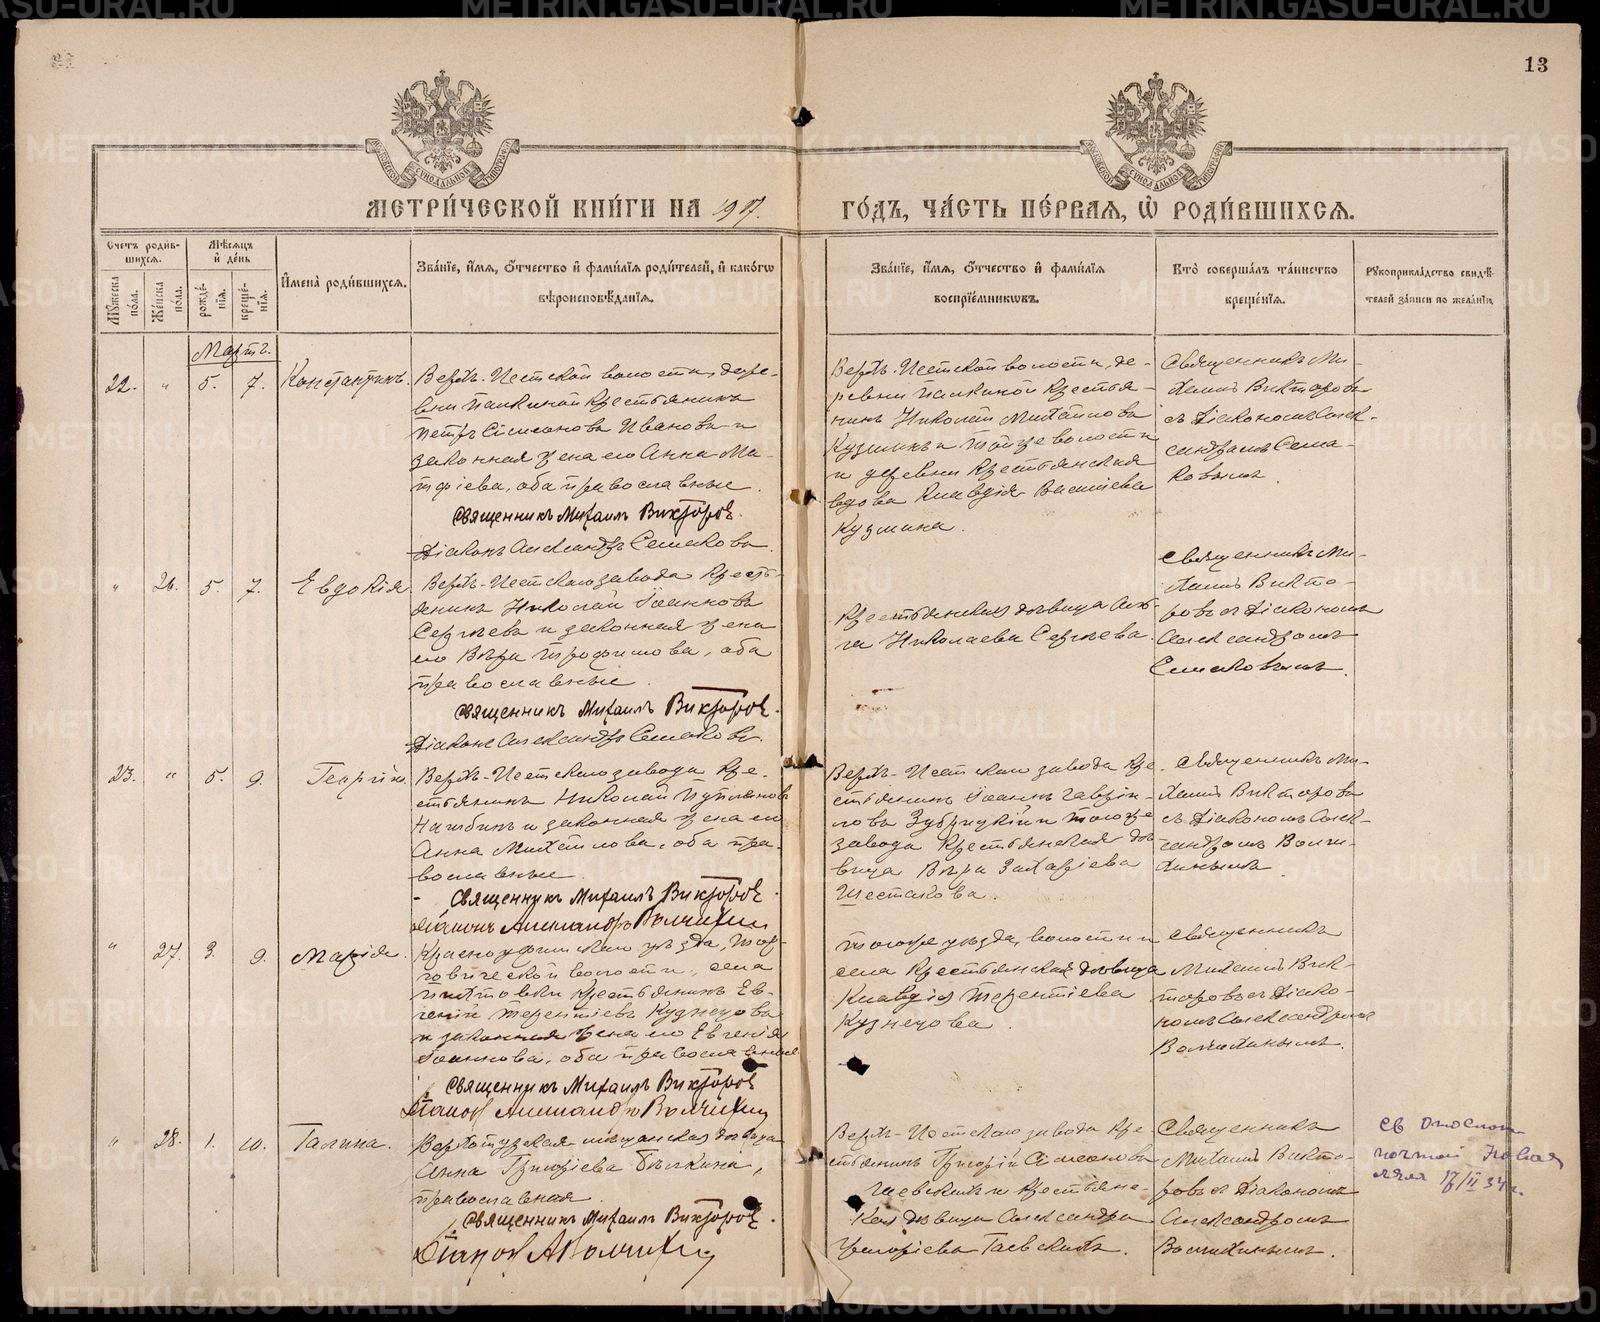 13
МЕТРИ́ЧЕСКОЙ КНИ́ГИ НА 1917.
ГО́ДЪ, ЧА́СТЬ ПЕ́РВАЯ, Ѡ҆ РОДИ́ВШИХСѦ.
Счетъ роди́вшихсѧ.
Мꙋжеска по́ла.
Же́нска по́ла.
Мѣ́сѧцъ и҆ де́нь
рожде́нїѧ.
креще́нїѧ.
И҆мена̀ роди́вшихсѧ.
Зва́нїе, и҆́мѧ, ѻ҆́тчество и҆ фами́лїѧ роди́телей, и҆ како́гѡ
вѣроисповѣ́данїѧ.
Зва́нїе, и҆́мѧ, ѻ҆́тчество и҆ фами́лїѧ
воспрїе́мникѡвъ.
Кто̀ соверша́лъ та́инство
креще́нїѧ.
Рꙋкоприкла́дство свидѣ́-
телей за́писи по жела́нїю.
Мартъ.
22. " 5. 7. Константинъ.
Верхъ-Исетской волости, дере-
вни Палкиной крестьянинъ
Петръ Симеоновъ Ивановъ и
законная жена его Анна Ма-
тфіева, оба православные.
Священникъ Михаилъ Викторов.
Діаконъ Александръ Семаковъ.
Верхъ-Исетской волости, де-
ревни Палкиной крестья-
нинъ Николай Михайловъ
Кузминъ и той же волости
и деревни крестьянская
вдова Клавдія Васильева
Кузмина.
Священникъ Ми-
хаилъ Викторовъ
съ діакономъ Алек-
сандромъ Сема-
ковымъ.
" 26. 5. 7. Евдокія
Верхъ-Исетскаго завода кресть-
янинъ Николай Іоанновъ
Сергѣевъ и законная жена
его Вѣра Трофимова, оба
православные.
Священникъ Михаилъ Викторов.
Діаконъ Александръ Семаковъ.
Крестьянская дѣвица Оль-
га Николаева Сергѣева.
Священникъ Ми-
хаилъ Викто-
ровъ съ діакономъ
Александромъ
Семаковымъ.
23. " 5. 9. Георгій.
Верхъ-Исетскаго завода кре-
стьянинъ Николай
и законная жена его
Анна Михайлова, оба пра-
вославные.
Священникъ Михаилъ Викторов.
Діаконъ Александръ Волчихин
Верхъ-Исетскаго завода кре-
стьянинъ Іоаннъ Гаврі-
ловъ Зубрицкій и того же
завода крестьянская дѣ-
вица Вѣра Захаріева
Шестакова.
Священникъ Ми-
хаилъ Викторовъ
съ діакономъ Алек-
сандромъ Волчи-
хинымъ.
" 27. 3. 9. Марія.
Красноуфимскаго уѣзда,
волости, села
крестьянинъ Ев-
геній Терентіевъ Кузнецовъ
и законная жена его Евгенія
Іоаннова, оба православные.
Священникъ Михаилъ Викторов
Діакон Александръ Волчихин
того же уѣзда, волости и
села крестьянская дѣвица
Клавдія Терентіева
Кузнецова.
Священникъ
Михаилъ Вик-
торовъ съ діако-
номъ Александромъ
Волчихинымъ.
" 28. 1. 10. Галина.
Верхотурская мѣщанская дѣвица
Анна Григоріева Бѣлкина,
православная.
Священникъ Михаилъ Викторов.
Діакон А Волчихин
Верхъ-Исетскаго завода кре-
стьянинъ Григорій Симеоновъ
Гаевскихъ и крестьянс-
кая дѣвица Александра
Григоріева Гаевскихъ.
Священникъ
Михаилъ Викто-
ровъ съ діакономъ
Александромъ
Волчихинымъ.
17/II 34 г.
METRIKI.GASO-URAL.RU